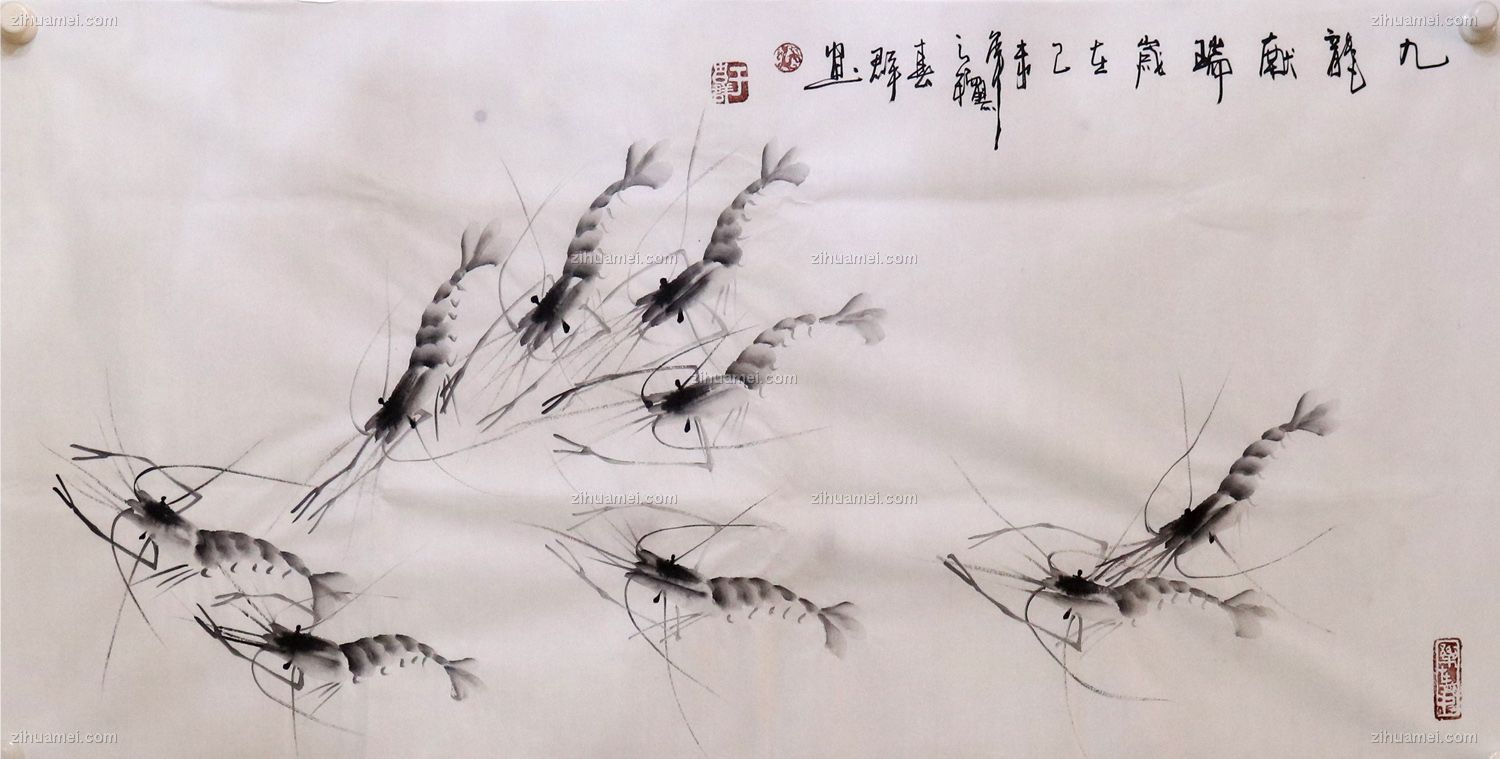 zihuamei.com
zihuamei.com
九龍献瑞歲在己未年之龝春群
zihuamei.com
zihuamei.com
zihuamei.com
zihuamei.com
zihuamei.com
zihuamei.com
zihuamei.com